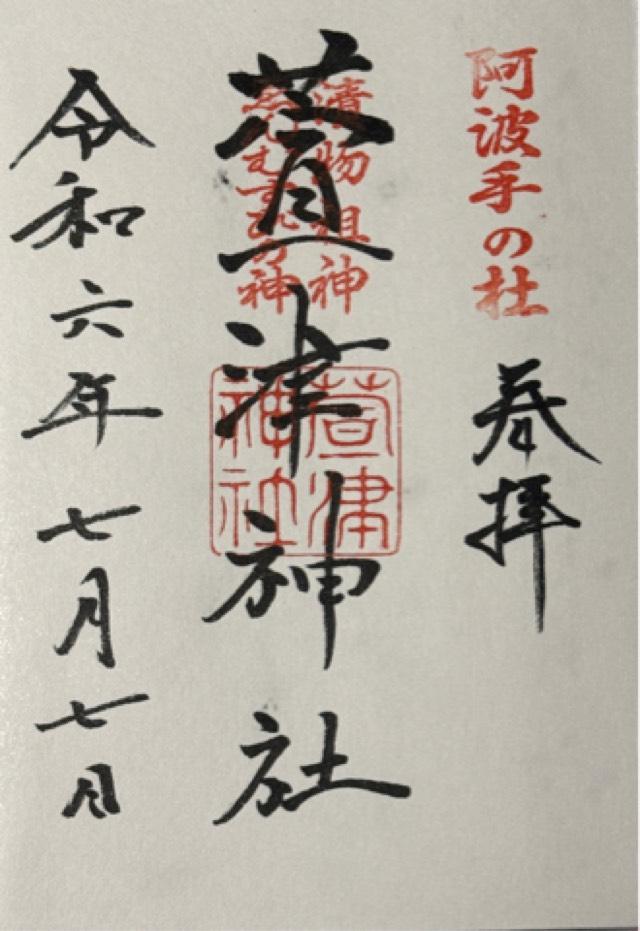 阿波手の杜
奉拝
漬物祖神
ゑんむすびの神
萱津神社
萱津
神社
令和六年七月七日